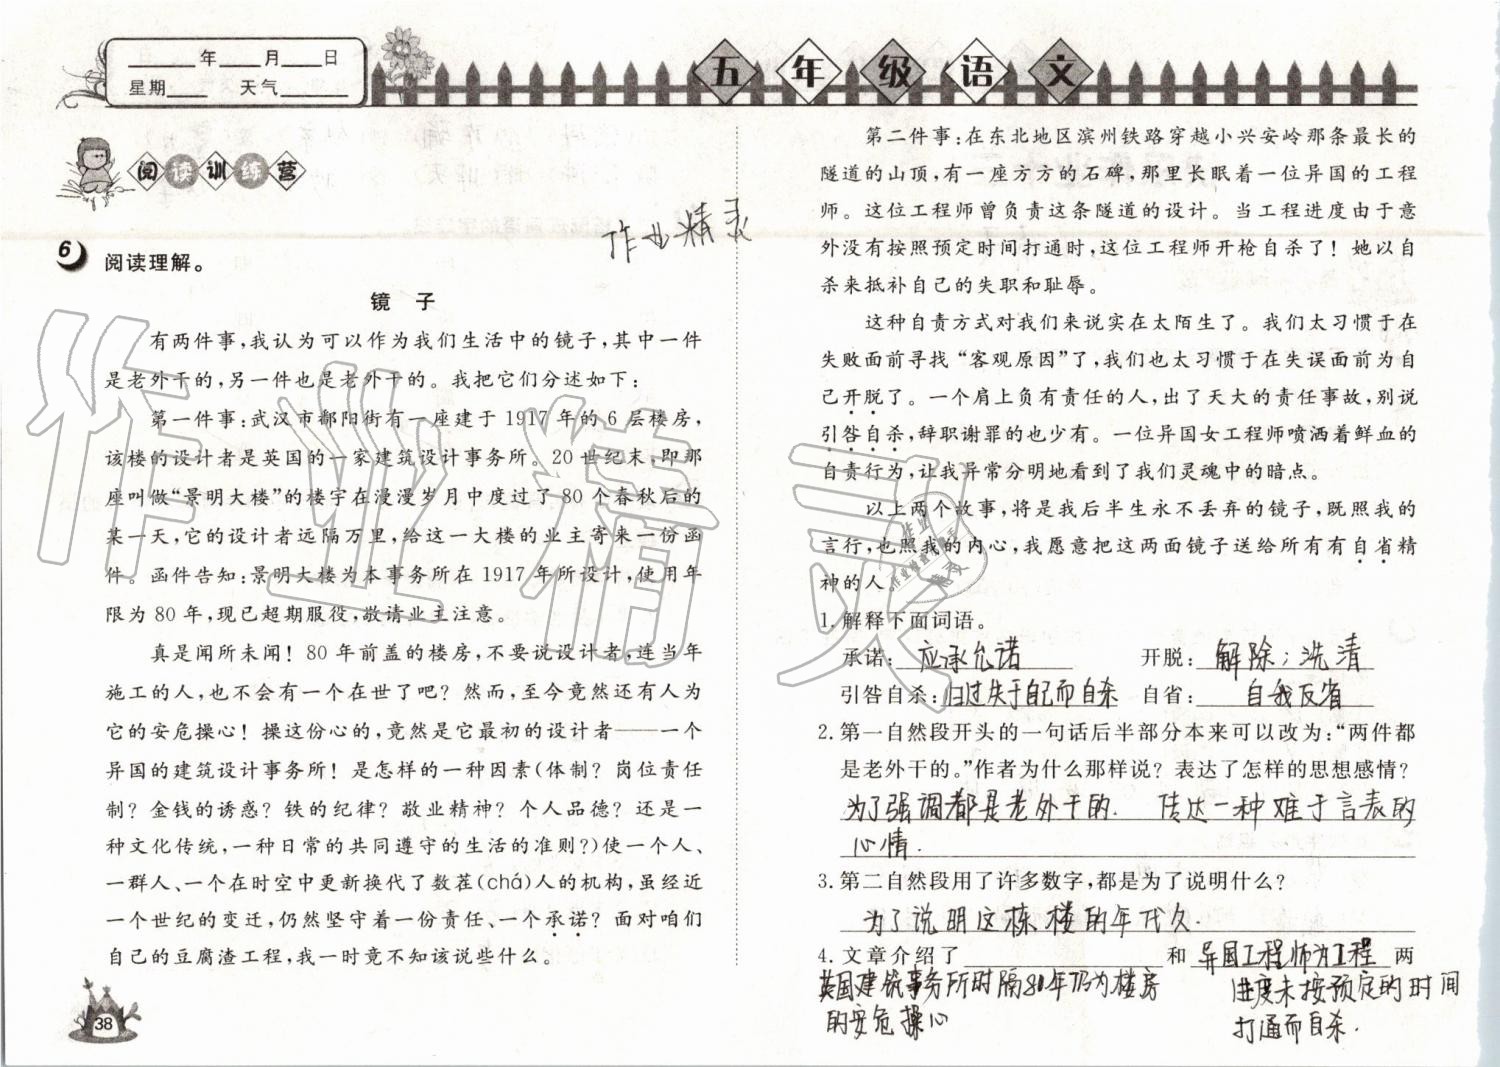 ____年____月____日
星期____ 天气______
五年级语文
阅读训练营
作业精灵
6 阅读理解。
镜 子
有两件事,我认为可以作为我们生活中的镜子,其中一件
是老外干的,另一件也是老外干的。我把它们分述如下:
第一件事:武汉市鄱阳街有一座建于 1917 年的 6 层楼房,
该楼的设计者是英国的一家建筑设计事务所。20 世纪末,即那
座叫做“景明大楼”的楼宇在漫漫岁月中度过了 80 个春秋后的
某一天,它的设计者远隔万里,给这一大楼的业主寄来一份函
件。函件告知:景明大楼为本事务所在 1917 年所设计,使用年
限为 80 年,现已超期服役,敬请业主注意。
真是闻所未闻！80 年前盖的楼房,不要说设计者,连当年
施工的人,也不会有一个在世了吧？然而,至今竟然还有人为
它的安危操心！操这份心的,竟然是它最初的设计者——一个
异国的建筑设计事务所！是怎样的一种因素(体制？岗位责任
制？金钱的诱惑？铁的纪律？敬业精神？个人品德？还是一
种文化传统,一种日常的共同遵守的生活的准则?)使一个人、
一群人、一个在时空中更新换代了数茬(chá)人的机构,虽经近
一个世纪的变迁,仍然坚守着一份责任、一个承诺？面对咱们
自己的豆腐渣工程,我一时竟不知该说些什么。
38
第二件事:在东北地区滨州铁路穿越小兴安岭那条最长的
隧道的山顶,有一座方方的石碑,那里长眠着一位异国的工程
师。这位工程师曾负责这条隧道的设计。当工程进度由于意
外没有按照预定时间打通时,这位工程师开枪自杀了！她以自
杀来抵补自己的失职和耻辱。
这种自责方式对我们来说实在太陌生了。我们太习惯于在
失败面前寻找“客观原因”了,我们也太习惯于在失误面前为自
己开脱了。一个肩上负有责任的人,出了天大的责任事故,别说
引咎自杀,辞职谢罪的也少有。一位异国女工程师喷洒着鲜血的
自责行为,让我异常分明地看到了我们灵魂中的暗点。
以上两个故事,将是我后半生永不丢弃的镜子,既照我的
言行,也照我的内心,我愿意把这两面镜子送给所有有自省精
神的人。
1. 解释下面词语。
承诺: 应承允诺 开脱: 解除;洗清
引咎自杀: 归过失于自己而自杀 自省: 自我反省
2. 第一自然段开头的一句话后半部分本来可以改为:“两件都
是老外干的。”作者为什么那样说？表达了怎样的思想感情?
为了强调都是老外干的. 传达一种难于言表的
心情.
3. 第二自然段用了许多数字,都是为了说明什么?
为了说明这栋楼的年代久.
4. 文章介绍了____________和 异国工程师为工程 两
英国建筑事务所时隔80年仍为楼房 进度未按预定的时间
的安危操心 打通而自杀.
作业精灵